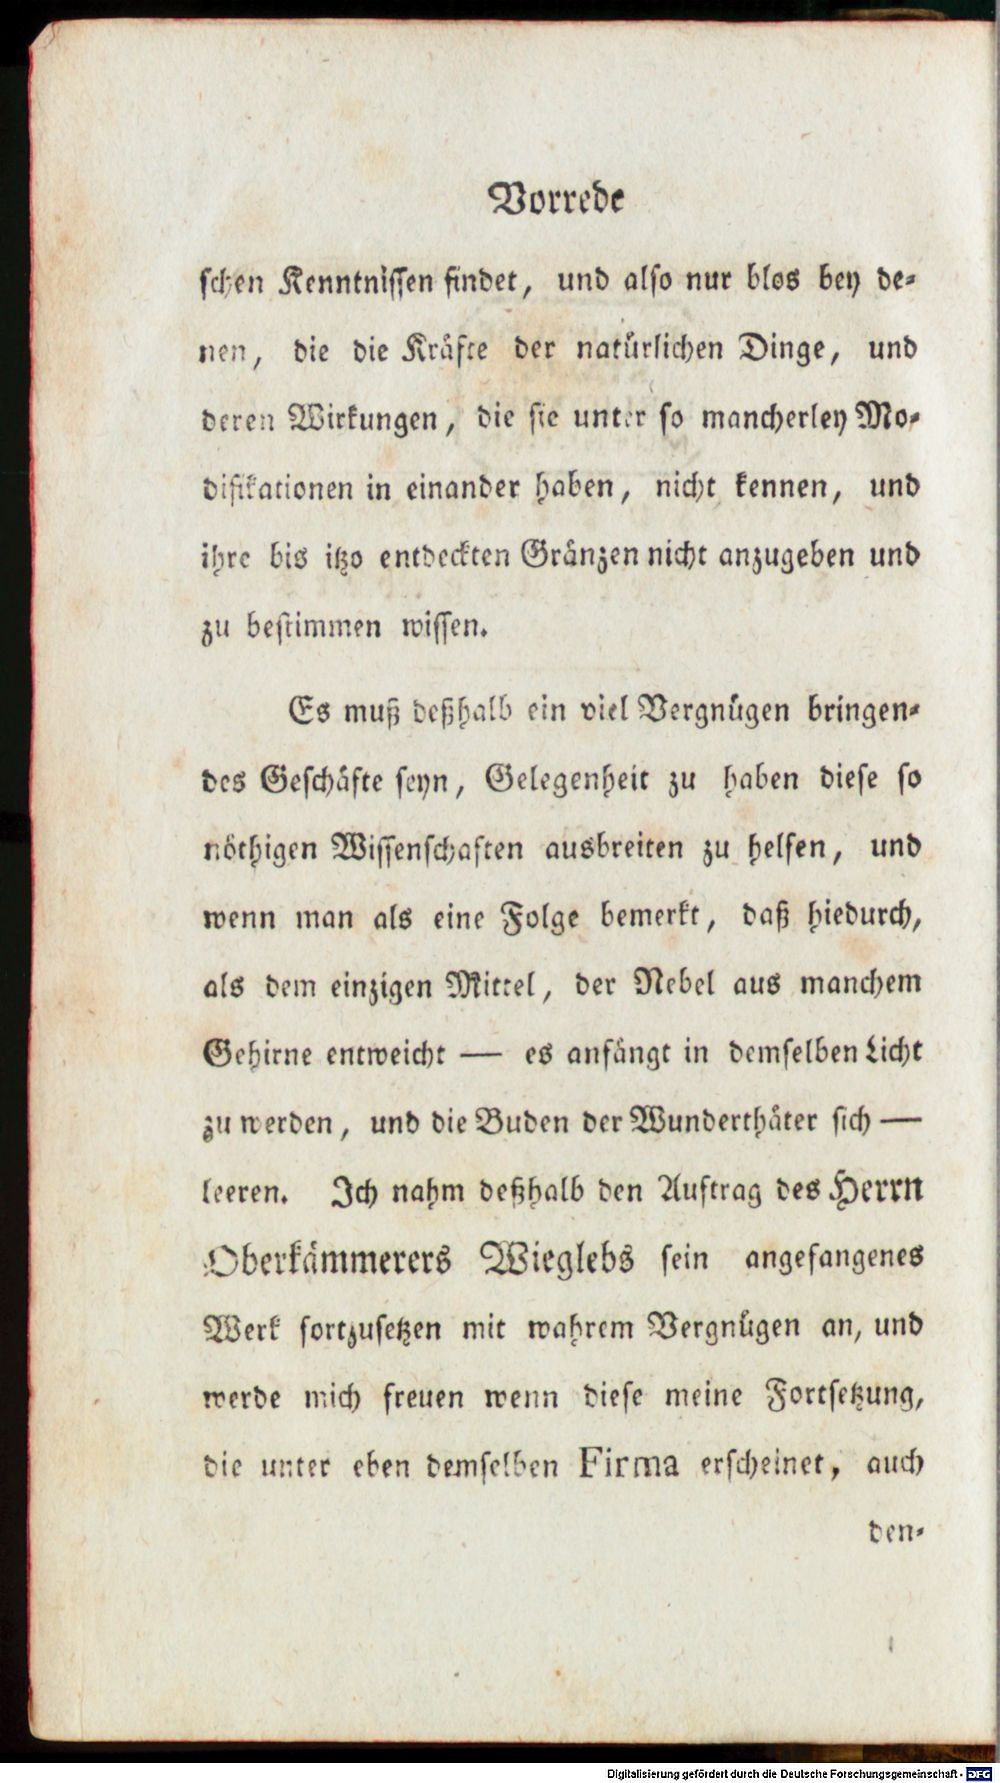 Vorrede
schen Kenntnissen findet, und also nur blos bey de-
nen, die die Kräfte der natürlichen Dinge, und
deren Wirkungen, die sie unter so mancherley Mo-
difikationen in einander haben, nicht kennen, und
ihre bis itzo entdeckten Gränzen nicht anzugeben und
zu bestimmen wissen.
Es muß deßhalb ein viel Vergnügen bringen-
des Geschäfte seyn, Gelegenheit zu haben diese so
nöthigen Wissenschaften ausbreiten zu helfen, und
wenn man als eine Folge bemerkt, daß hiedurch,
als dem einzigen Mittel, der Nebel aus manchem
Gehirne entweicht — es anfängt in demselben Licht
zu werden, und die Buden der Wunderthäter sich —
leeren. Ich nahm deßhalb den Auftrag des Herrn
Oberkämmerers Wieglebs sein angefangenes
Werk fortzusetzen mit wahrem Vergnügen an, und
werde mich freuen wenn diese meine Fortsetzung,
die unter eben demselben Firma erscheinet, auch
den-
Digitalisierung gefördert durch die Deutsche Forschungsgemeinschaft - DFG